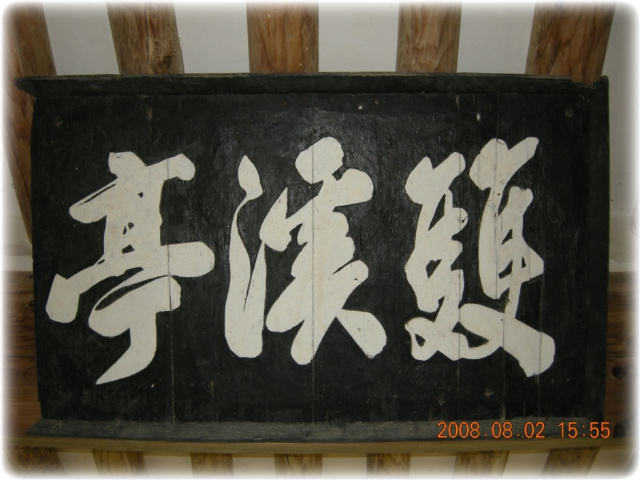 雙溪亭
2008.08.02 15:55